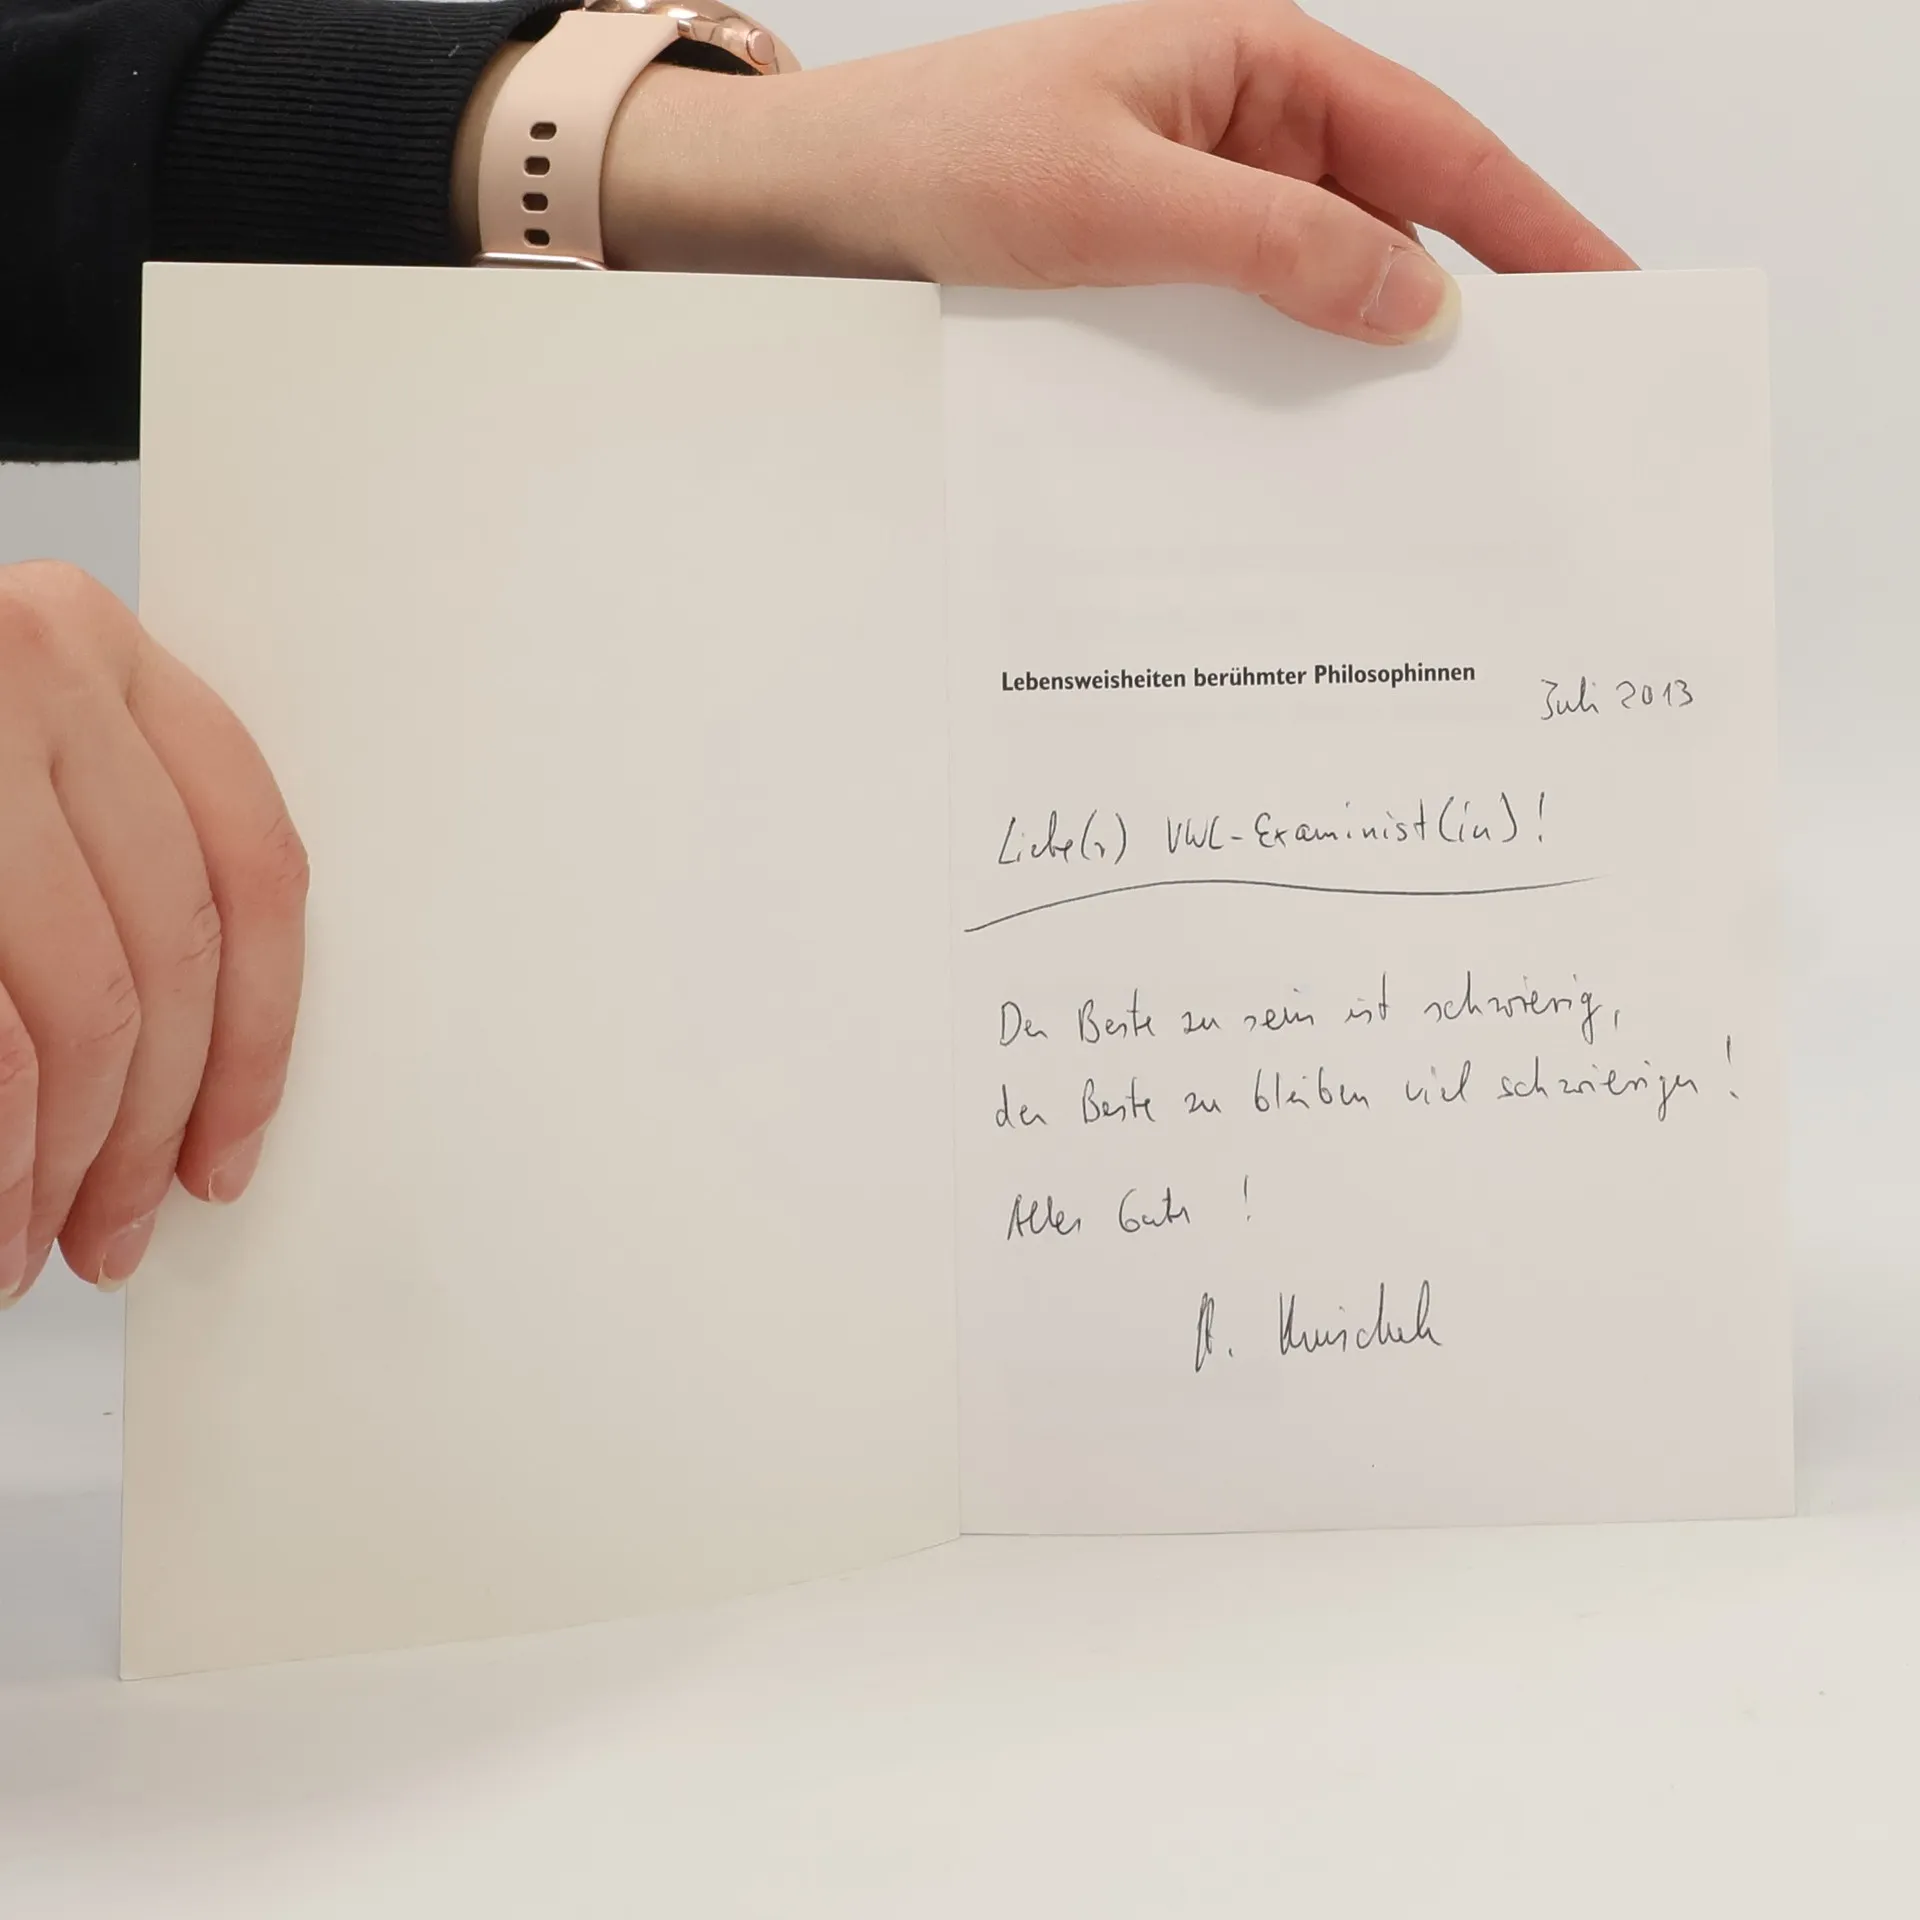 Lebensweisheiten berühmter Philosophinnen
Juli 2013
Liebe(r) VWL-Examinist(in)!
Der Beste zu sein ist schwierig,
der Beste zu bleiben viel schwieriger!
Alles Gute!